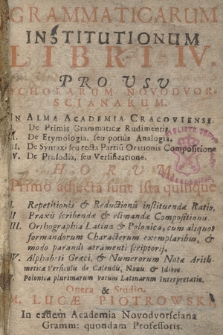 GRAMMATICARUM
INSTITUTIONUM
LIBRI IV.
PRO USU
SCHOLARUM NOVODVOR-
SCIANARUM.
IN ALMA ACADEMIA CRACOVIENSI.
De Primis Grammaticæ Rudimentis.
II. De Etymologia, seu potius Analogia.
III. De Syntaxi seu recta Partiũ Orationis Compositione
IV. De Prosodia, seu Versificatione.
HORUM
Primo adjecta sunt ista quilisque
I. Repetitionis & Reductionis instituendæ Ratio.
II Praxis scribendæ & elimandæ Compositionis.
III. Orthographia Latina & Polonica, cum aliquot
formandorum Characterum exemplaribus, &
modo parandi atramenti scriptorij.
IV. Alphabeti Græci, & Numerorum Nota Arith-
metica Versiculis de Calendis, Nonis & Idibus
Polonica plurimarum vocum Latinarum Interpretatio.
Opera & Studio,
M. LUCÆ PIOTROWSKI
In eadem Academia Novodvorsciana
Gramm: quondam Professoris.